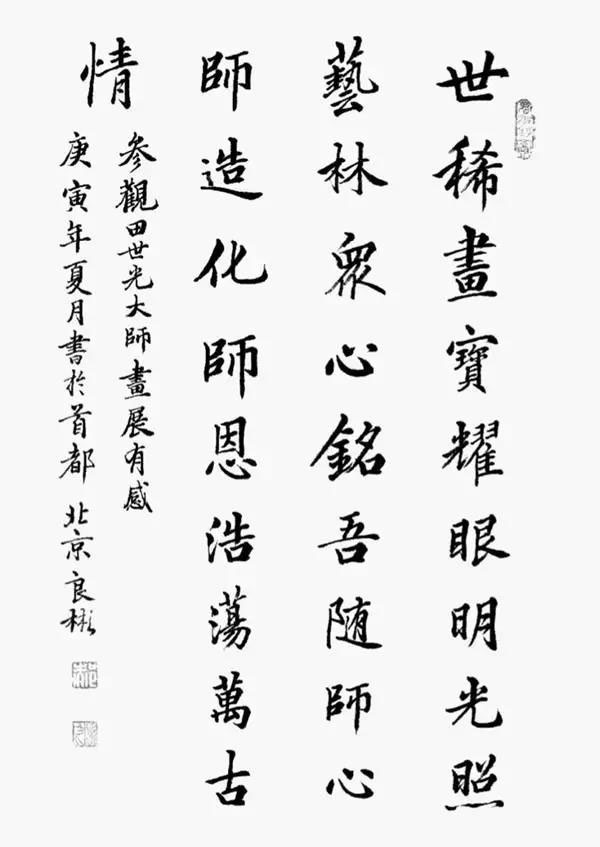 世稀畫寶耀眼明光照
藝林眾心銘吾随師心
師造化師恩浩蕩萬古
情
参觀田世光大師畫展有感
庚寅年夏月書於首都北京良彬